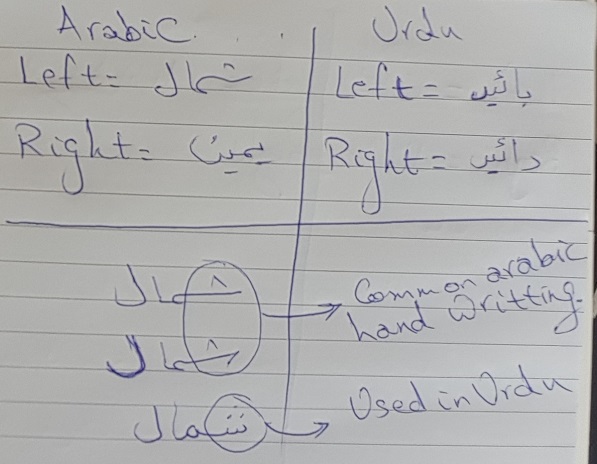 Arabic. Urdu
Left = شمال Left = بائیں
Right = يمين Right = دائیں
شمال
Common arabic
hand writting.
شمال
شمال Used in Urdu